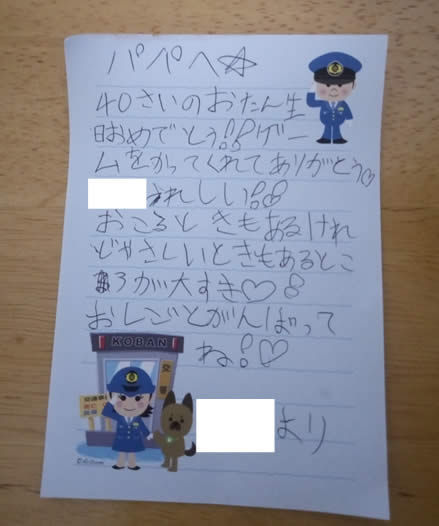 パパへ☆
40さいのおたん生
日おめでとう!!ゲー
ムをかってくれてありがとう♡
うれしい!!
おこるときもあるけれ
どやさしいときもあるとこ
ろが大すき♡!
おしごとがんばって
ね!♡
KOBAN
交番
より